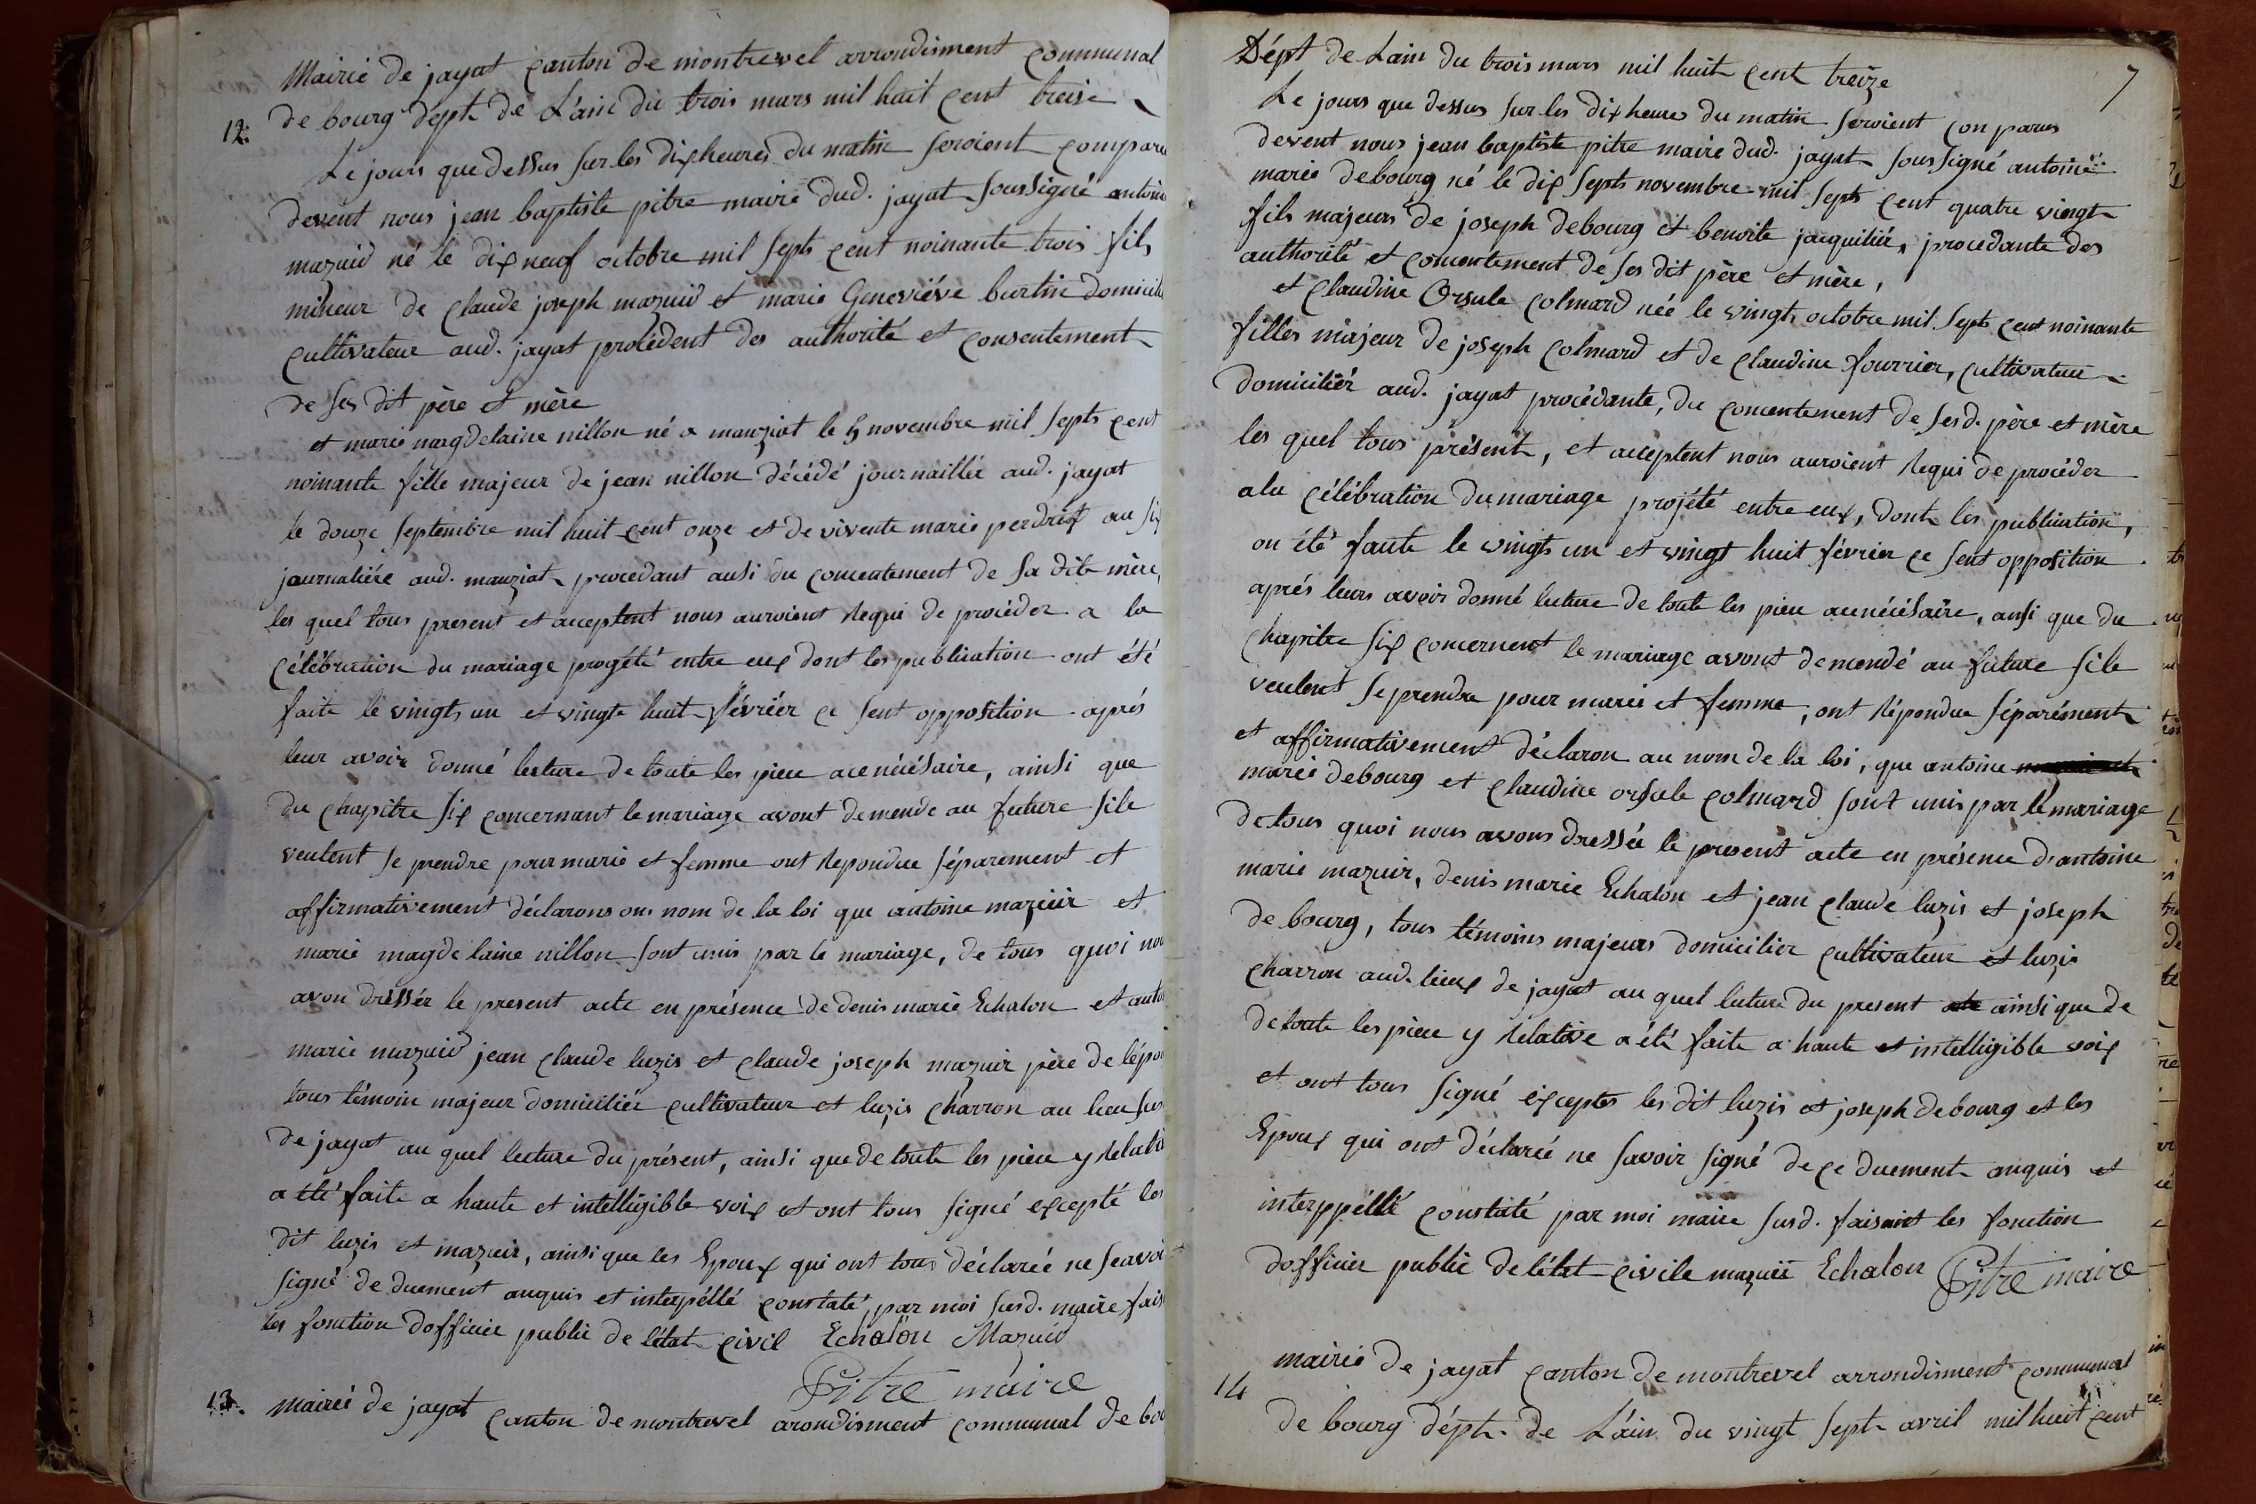 12.
Mairie de jayat canton de montrevel arrondisment communal
de bourg dept de L'ain du trois mars mil huit cent treise
Le jours que dessus sur les dix heures du matin seroient compara
devent nous jean baptiste pitre maire dud. jayat soussigné antoin
mazuir né le dix neuf octobre mil sept cent noinante trois fils
mineur de claude joseph mazuir et marie Geneviéve burtin domicili
cultivateur aud. jayat procèdent des authorité et consentement
de ses dit père et mère
et marie magdelaine nillon né a manziat le 5 novembre mil septs cent
noinante fille majeur de jean nillon décédé journaillié aud. jayat
le douze septembre mil huit cent onze et de vivente marie perdrix au six
journalière aud. manziat procedant ausi du concentement de sa dite mère,
les quel tous present et acceptent nous auroient requi de procéder a la
célébration du mariage progété entre eux dont les publication ont été
faite le vingt un et vingt huit février ce sent opposition après
leur avoir donné lecture de toute les piece ace nécésaire, ainsi que
du chapitre six concernant le mariage avont demende au future sile
veulent se prendre pour marie et femme ont repondue séparement et
affirmativement déclarons on nom de la loi que antoine mazuir et
marie magdelaine nillon sont unis par le mariage, de tous quoi nou
avon dréssér le present acte en présence de denis marie Echalon et anto
marie mazuir jean claude luzis et claude joseph mazuir père de lépou
tous témoin majeur domiciliér cultivateur et luzis charron au lieu sus
de jayat au quel lecture du présent, ainsi que de toute les piece y relati
a été faite a haute et intelligible voix et ont tous signé excepté les
dit luzis et mazuir, ainsi que les Epoux qui ont tous déclarée ne scavoi
signé de duement anquis et interpéllé constaté, par moi susd. maire fais
les fonction dofficier public de létat civil Echalon Mazuir
Pitre maire
13. mairie de jayat canton de montrevel arondisment communal de bou
7
Dépt de Lain du trois mars mil huit cent treize
Le jours que dessus sur les dix heures du matin seroient conparus
devent nous jean baptiste pitre maire dud. jayat soussigné antoine
marie debourg né le dix septs novembre mil septs cent quatre vingt
fils majeurs de joseph debourg et benoite jacquiliér, procedante des
authorité et concentement de ses dit père et mère,
et claudine Orsule colmard née le vingt octobre mil septs cent noinante
filles majeur de joseph colmard et de claudine fourrier, cultivateur
domiciliér aud. jayat procédante, du concentement de sesd. père et mère
les quel tous présent, et acceptent nous auroient requi de procéder
ala célébration du mariage projété entre eux, dont les publication,
on été faute le vingt un et vingt huit février ce sent opposition
aprés leurs avoir donné lecture de toute les piece acenécésaire, ansi que du
chapitre six concernent le mariage avont demendé au future sile
veulent se prendre pour marie et femme, ont répondue séparément
et affirmativement déclaron au nom de la loi, que antoine
marie debourg et claudine orsule colmard sont unis par le mariage
detous quoi nous avons dressée le present acte en présence d'antoine
marie mazuir, denis marie Echalon et jean claude luzis et joseph
de bourg, tous témoins majeurs domicilier cultivateur et luzis
charron aud. lieux de jayat au quel lecture du present ainsi que de
detoute les piece y relative a été faite a haute et intelligible voix
et ont tous signé exceptes les dit luzis et joseph debourg et les
Epoux qui ont déclarée ne savoir signé de ce duement anquis et
interppéllé constaté par moi maire susd. faisant les fonction
dofficier public de létat civile mazuir Echalon Pitre maire
14
mairie de jayat canton de montrevel arrondisment communal
de bourg dépt. de L'ain du vingt sept avril mil huit cent